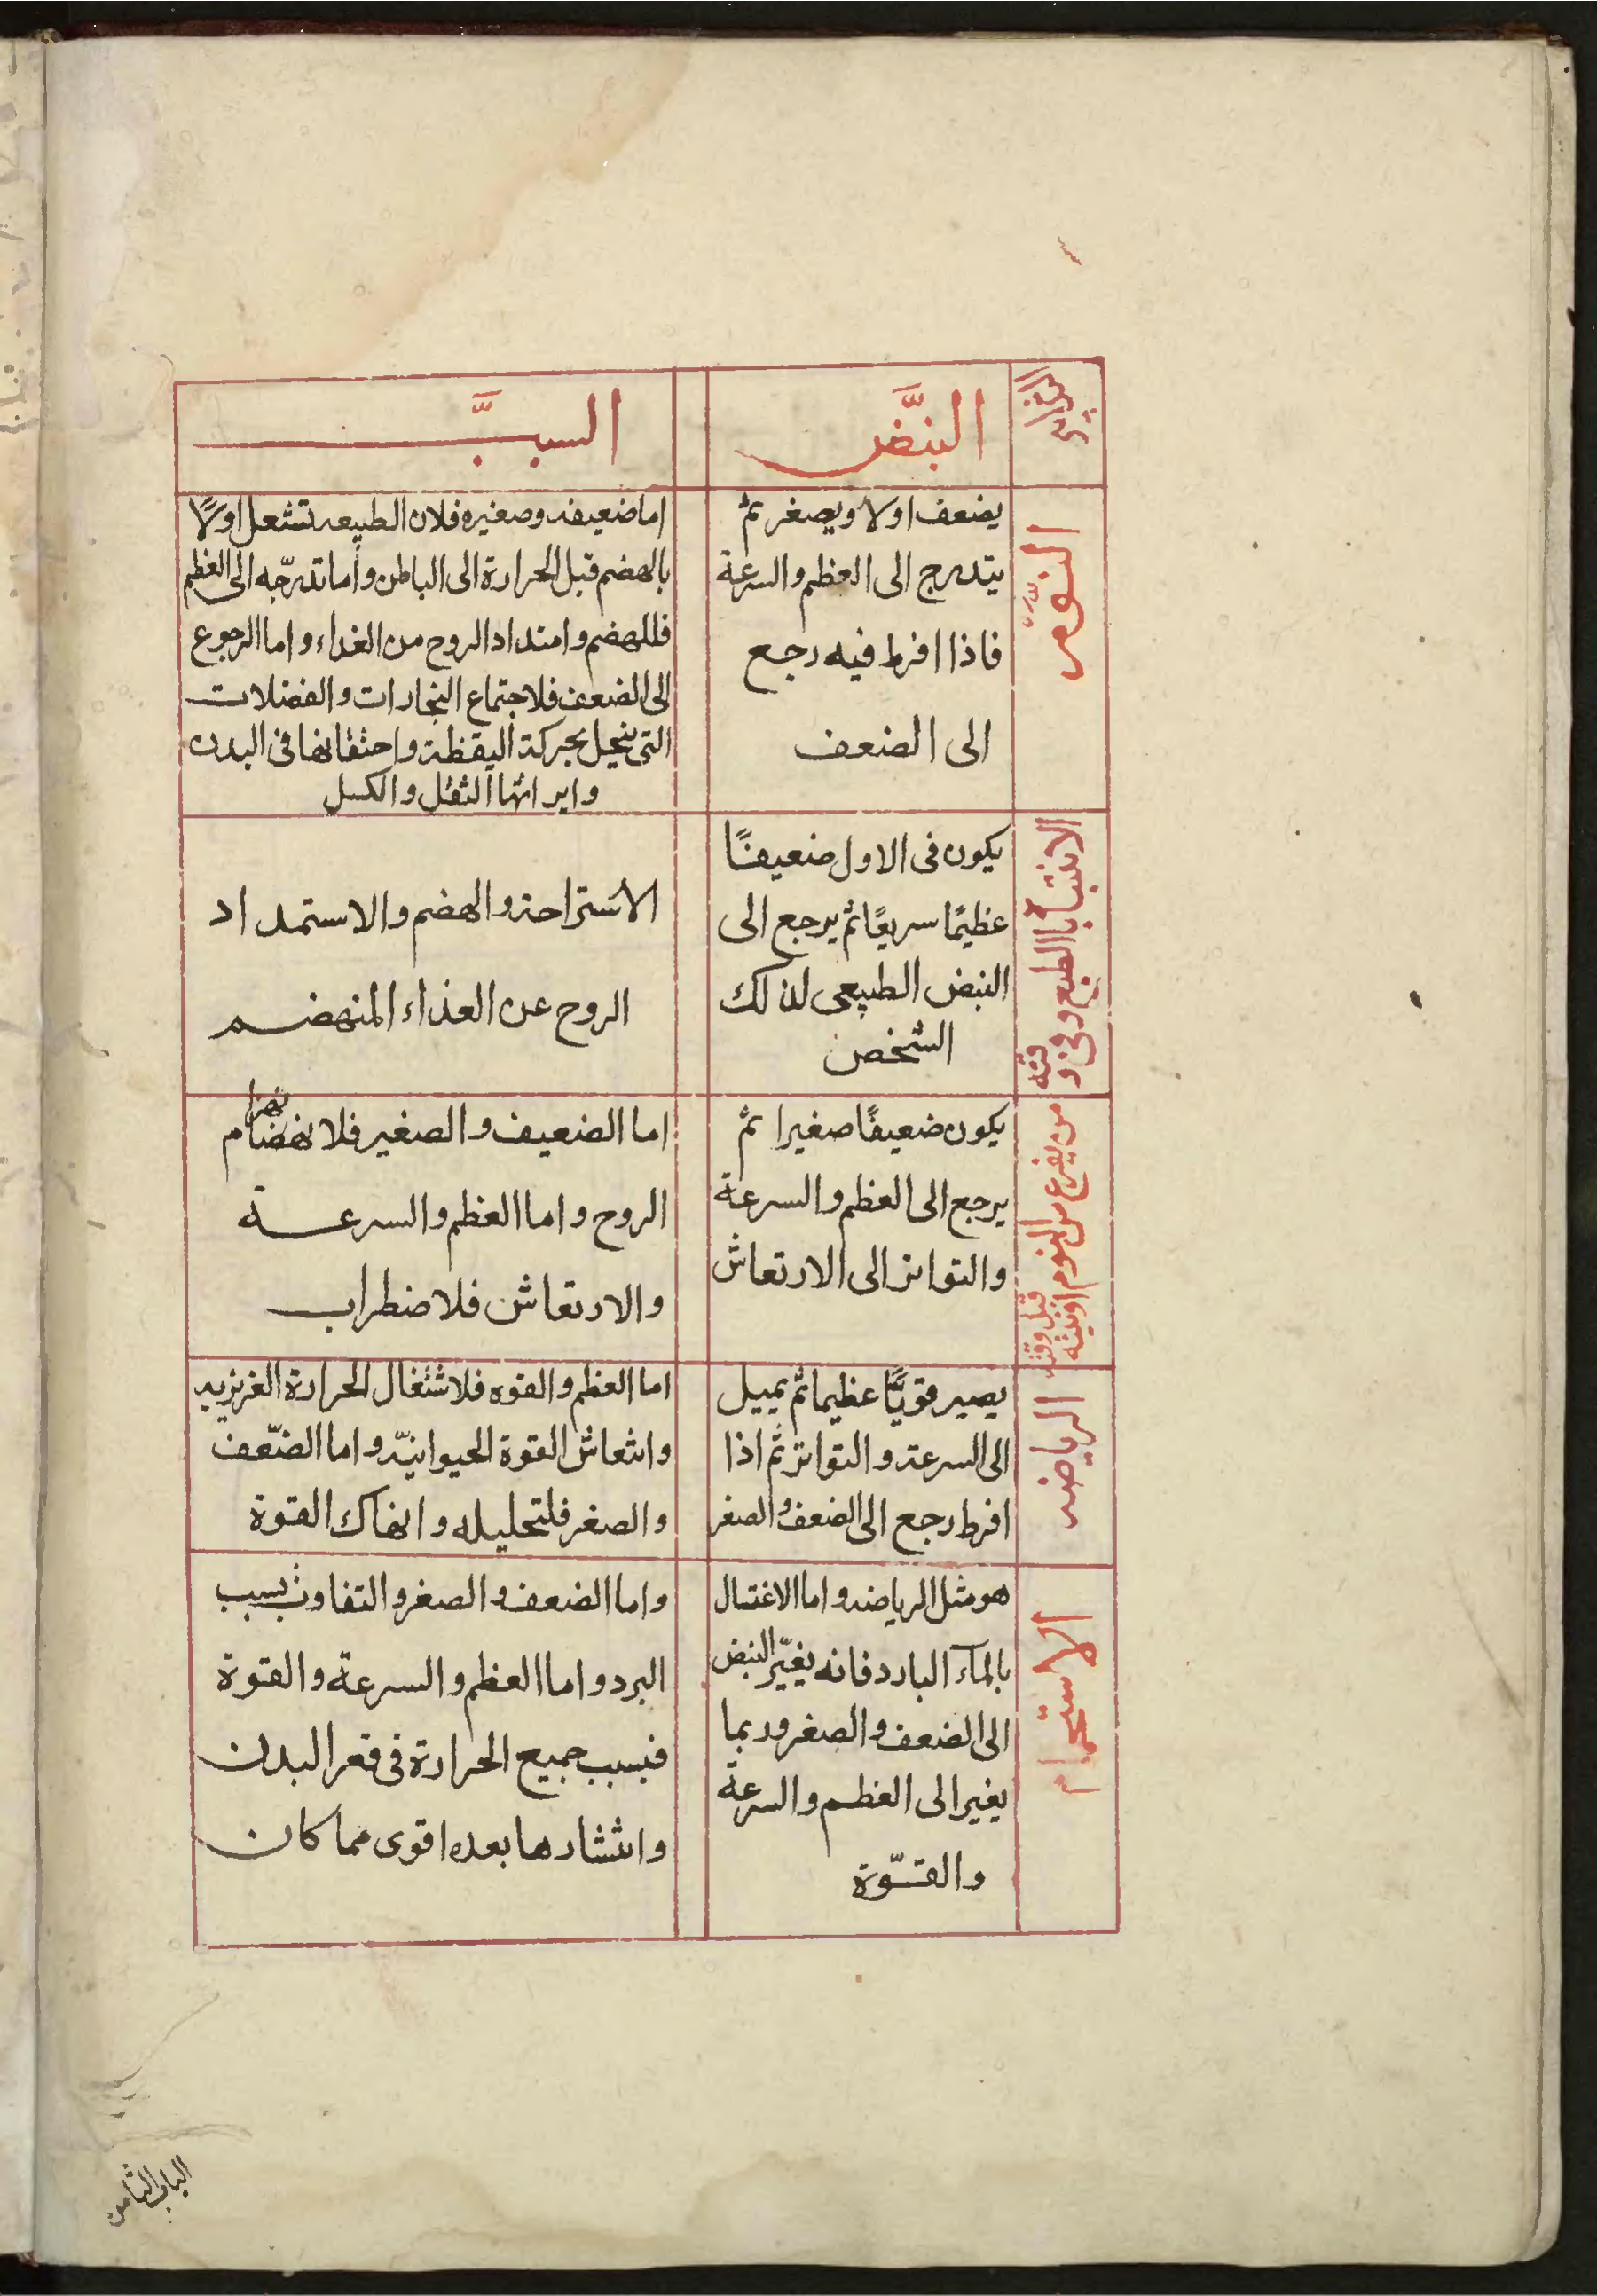 النبض
السبب
النوم
يضعف اولا ويصغر ثم
يتدرج الى العظم والسرعة
فاذا افرط فيه رجع
الى الضعف
اما ضعيفه وصغيره فلان الطبيعه تشتعل اولًا
بالهضم قبل الحرارة الى الباطن وأما تدرّجه الى العظم
فللهضم وامتداد الروح من الغداء واما الرجوع
الى الضعف فلاجتماع البخارات والفضلات
التى ينحل بحركة اليقظة واحتقانها فى البدن
وايراثها الثقل والكسل
الانتباه بالطبع وفى و
قته
يكون فى الاول ضعيفًا
عظيمًا سريعًا ثم يرجع الى
النبض الطبيعى لذلك
الشخص
الاستراحة والهضم والاستمداد
الروح عن الغذاء المنهضم
من يفزع من النوم
قبل وقته
يكون ضعيفًا صغيرا ثم
يرجع الى العظم والسرعة
والتواتر الى الارتعاش
اما الضعيف والصغير فلانهضام
الروح واما العظم والسرعة
والارتعاش فلاضطراب
الرياضه
يصير قويًّا عظيما ثم يميل
الى السرعة والتواتر ثم اذا
افرط رجع الى الضعف والصغر
اما العظم والقوه فلاشتغال الحرارة الغريزيه
وانتعاش القوة الحيوانيّه واما الضّعف
والصغر فلتحليله وانهاك القوة
الاستحمام
هو مثل الرياضه واما الاغتسال
بالمآء البارد فانه يغيّر النبض
الى الضعف والصغر وربما
يغير الى العظم والسرعة
والقّوة
واما الضعف والصغر والتفاوت بسبب
البرد واما العظم والسرعة والقوة
فبسبب جميع الحرارة فى قعر البدن
وانتشارها بعده اقوى مما كان
الباب الثامن